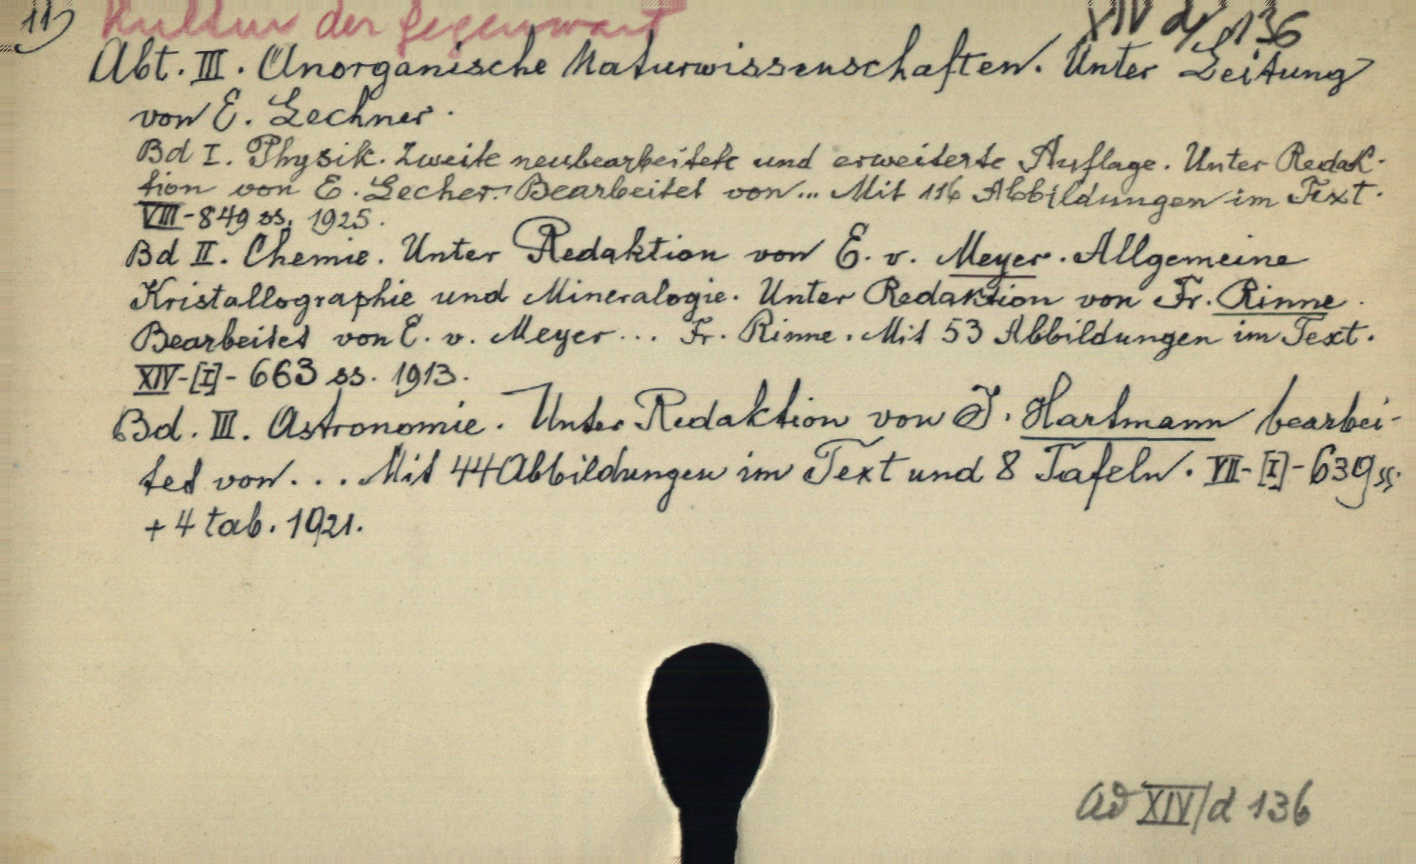 11) Kultur der Gegenwart XIV d/136
Abt. III. Anorganische Naturwissenschaften. Unter Leitung
von E. Lechner.
Bd I. Physik. Zweite neubearbeitete und erweiterte Auflage. Unter Redak-
tion von E. Lecher. Bearbeitet von... Mit 116 Abbildungen im Text.
VIII-849 ss. 1925.
Bd II. Chemie. Unter Redaktion von E. v. Meyer. Allgemeine
Kristallographie und Mineralogie. Unter Redaktion von Fr. Rinne.
Bearbeitet von E. v. Meyer... Fr. Rinne. Mit 53 Abbildungen im Text.
XIV-[I]-663 ss. 1913.
Bd. III. Astronomie. Unter Redaktion von J. Hartmann bearbei-
tet von... Mit 44 Abbildungen im Text und 8 Tafeln. VII-[I]-639 ss.
+ 4 tab. 1921.
ad XIV/d 136